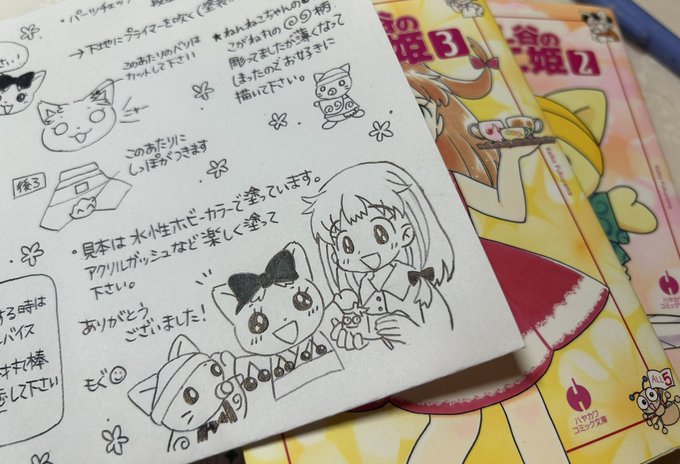 ・パーツチェック
→下地にプライマーを吹く
このあたりのバリは
カットして下さい
ニャー
★ねんねこちゃんの
こがねれの◎◎柄
彫ってましたが薄くなって
しまったのでお好きに
描いて下さい。
後ろ
このあたりに
しっぽがつきます
・見本は水性ホビーカラーで塗っています。
アクリルガッシュなど楽しく塗って
下さい。
ありがとう
ございました！
もぐ
する時は
バイス
棒
して下さい
谷の
姫 3
谷の
姫 2
ハヤカワ
コミック文庫
ハヤカワ
コミック文庫
ALL 5